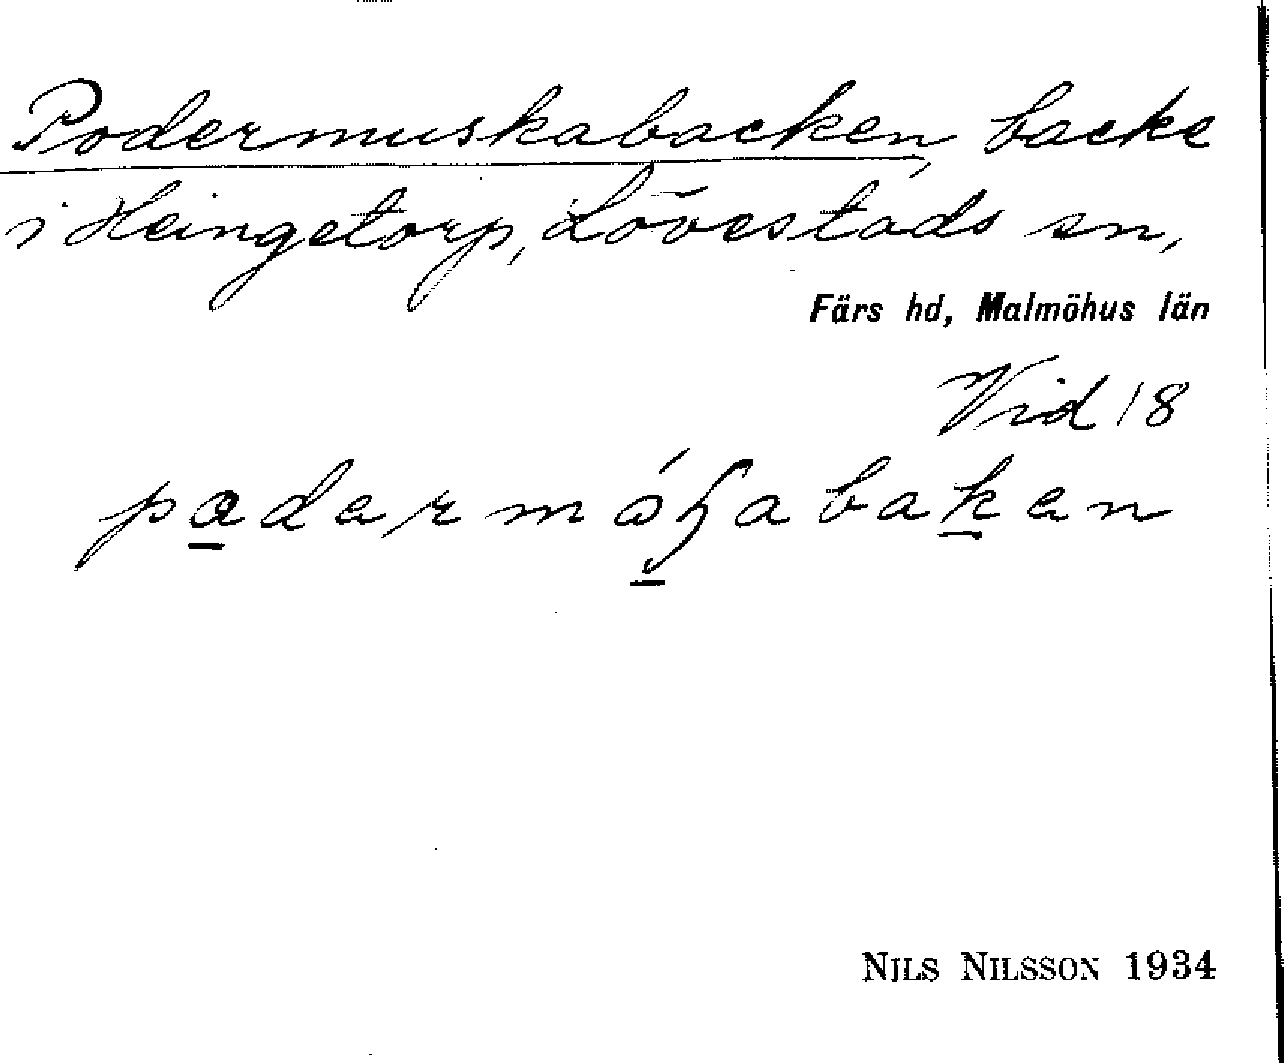 Podermuskabacken, backe
i Heingetorp, Lövestads sn,
Färs hd, Malmöhus län
Vid 18
NILS NILSSON 1934